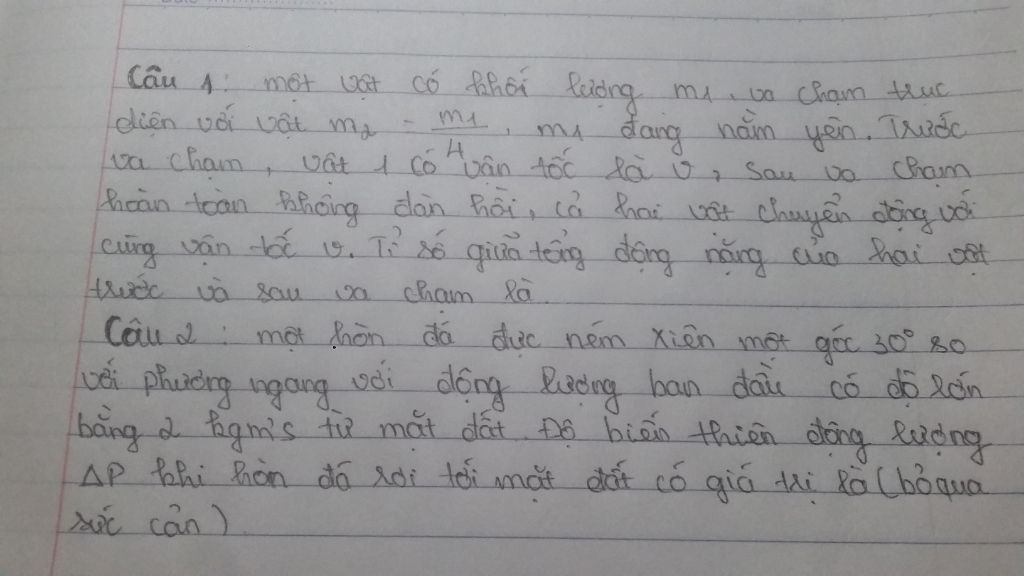 Câu 1: một vật có khối lượng m1, va chạm trực
diện với vật m2 = m1/4, m1 đang nằm yên. Trước
va chạm, vật 1 có vận tốc là v, sau va chạm
hoàn toàn không đàn hồi, cả hai vật chuyển động với
cùng vận tốc v. Tỉ số giữa tổng động năng của hai vật
trước và sau va chạm là
Câu 2: một hòn đá được ném xiên một góc 30° so
với phương ngang với động lượng ban đầu có độ lớn
bằng 2 kgm/s từ mặt đất. Độ biến thiên động lượng
ΔP khi hòn đá rơi tới mặt đất có giá trị là (bỏ qua
sức cản)